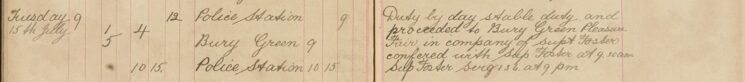 Tuesday 9 12 Police Station 9 Duty by day stable duty and
15th July 1/5 4 proceeded to Bury Green Pleasure
Bury Green 9 Fair in company of supt Foster
confered with Sup Foster at 9.10am
10 15 Police Station 10 15 Sup Foster Serg 156 at 9 pm